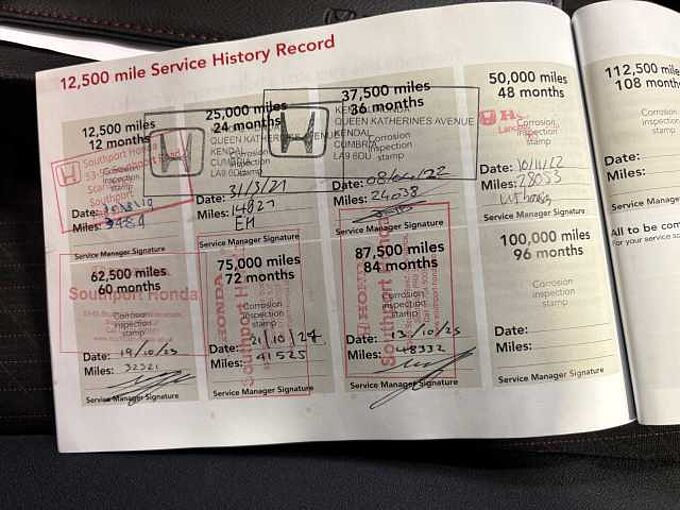 12,500 mile Service History Record
12,500 miles
12 months
Southport Honda
Southport
Corrosion
inspection
stamp
Date:
Miles:
Service Manager Signature
25,000 miles
24 months
QUEEN KATHERINES AVENUE
KENDAL
CUMBRIA
LA9 6DU
Corrosion
inspection
stamp
Date: 31/3/21
Miles: 14927
EH
Service Manager Signature
37,500 miles
36 months
QUEEN KATHERINES AVENUE
KENDAL
CUMBRIA
LA9 6DU
Corrosion
inspection
stamp
Date: 08/04/22
Miles: 24038
Service Manager Signature
50,000 miles
48 months
Corrosion
inspection
stamp
Date: 10/11/22
Miles: 28053
Service Manager Signature
62,500 miles
60 months
Southport Honda
Corrosion
inspection
stamp
Date: 19/10/23
Miles: 32321
Service Manager Signature
75,000 miles
72 months
HONDA
Southport
Corrosion
inspection
stamp
Date: 21/10/24
Miles: 41525
Service Manager Signature
87,500 miles
84 months
HONDA
Southport
Corrosion
inspection
stamp
Date: 13/10/25
Miles: 48332
Service Manager Signature
100,000 miles
96 months
Corrosion
inspection
stamp
Date:
Miles:
Service Manager Signature
112,500 mile
108 month
Corrosion
inspection
stamp
Date:
Miles:
Service Manager
All to be com
For your service sc